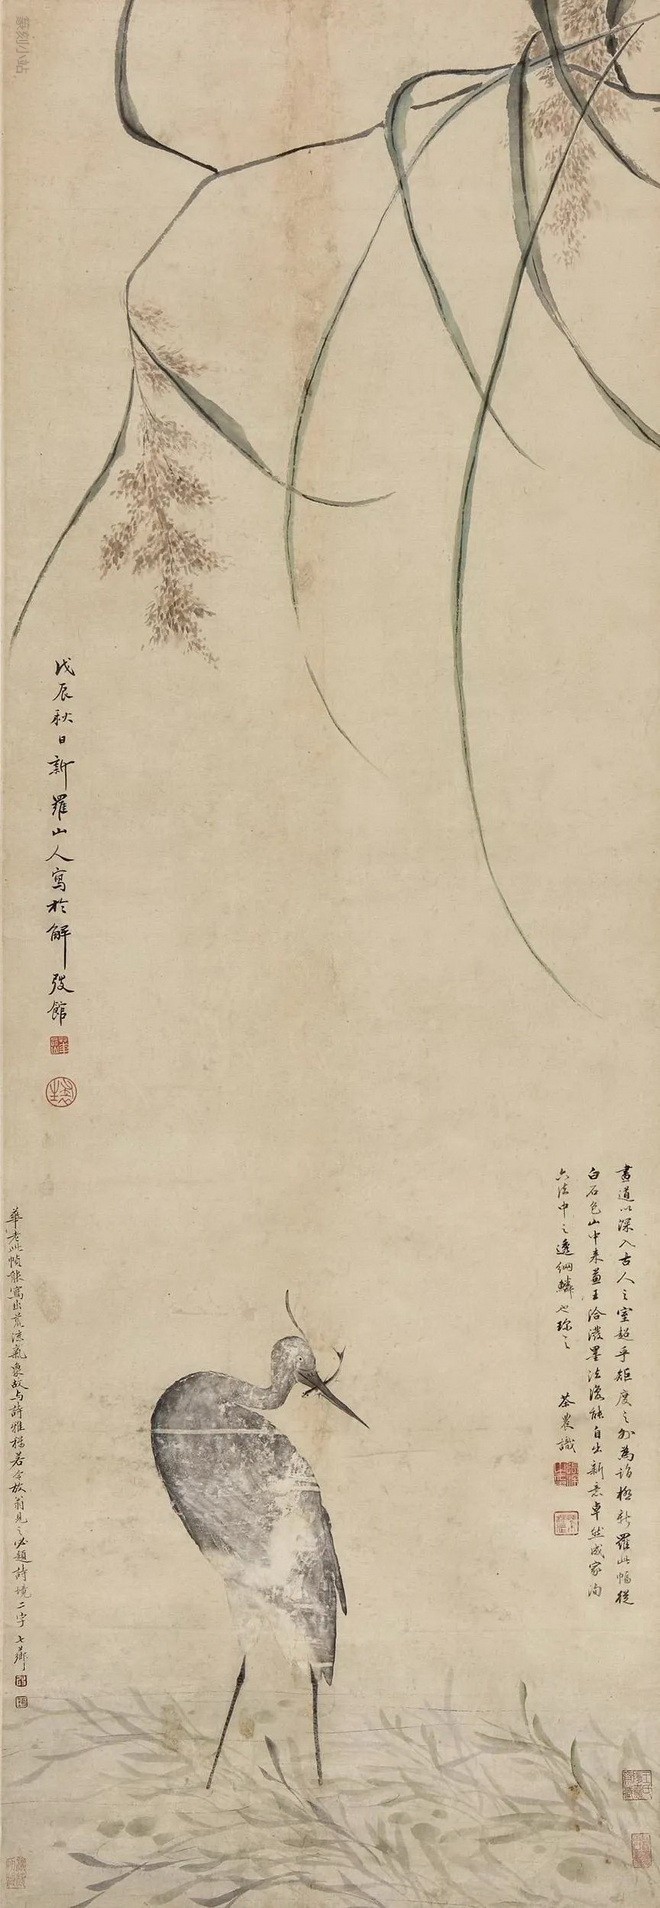 戊辰秋日新羅山人寫於解弢館
畫道以深入古人之室超乎矩度之外為詣極新羅此幅從
白石色山中来蓋王洽潑墨法後能自出新意卓然成家洵
六法中之透網鱗也珎之
茶農識
華老此幀能寫出荒涼氣象故与詩雅称若令放翁見之必題詩境二字 七薌